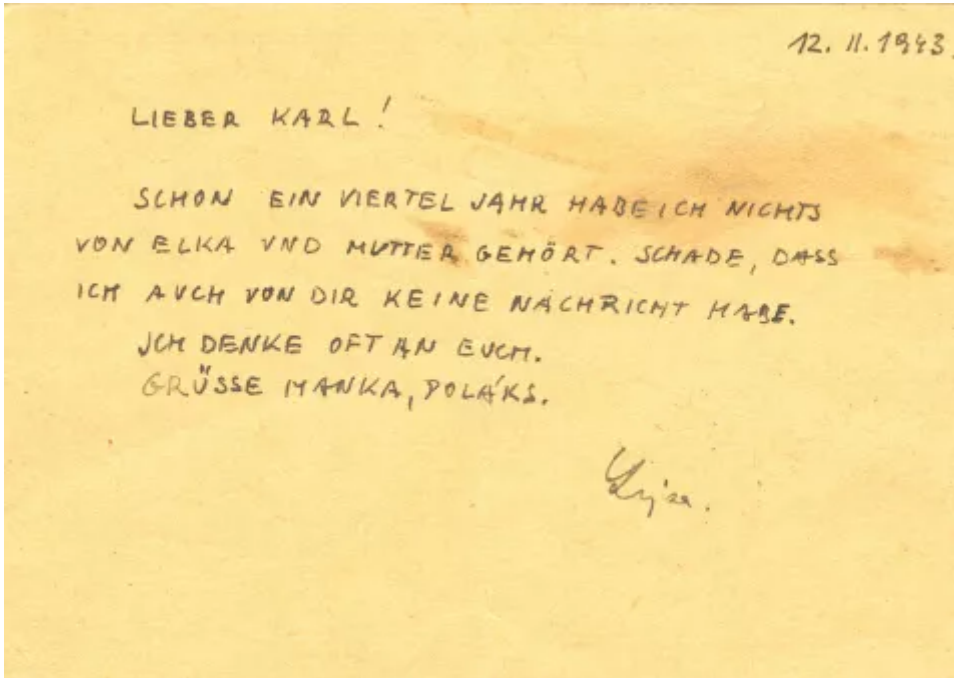 12. II. 1943.
LIEBER KARL!
SCHON EIN VIERTEL JAHR HABE ICH NICHTS
VON ELKA VND MUTTER GEHÖRT. SCHADE, DASS
ICH AVCH VON DIR KEINE NACHRICHT HABE.
ICH DENKE OFT AN EVCH.
GRÜSSE MANKA, POLÁKS.